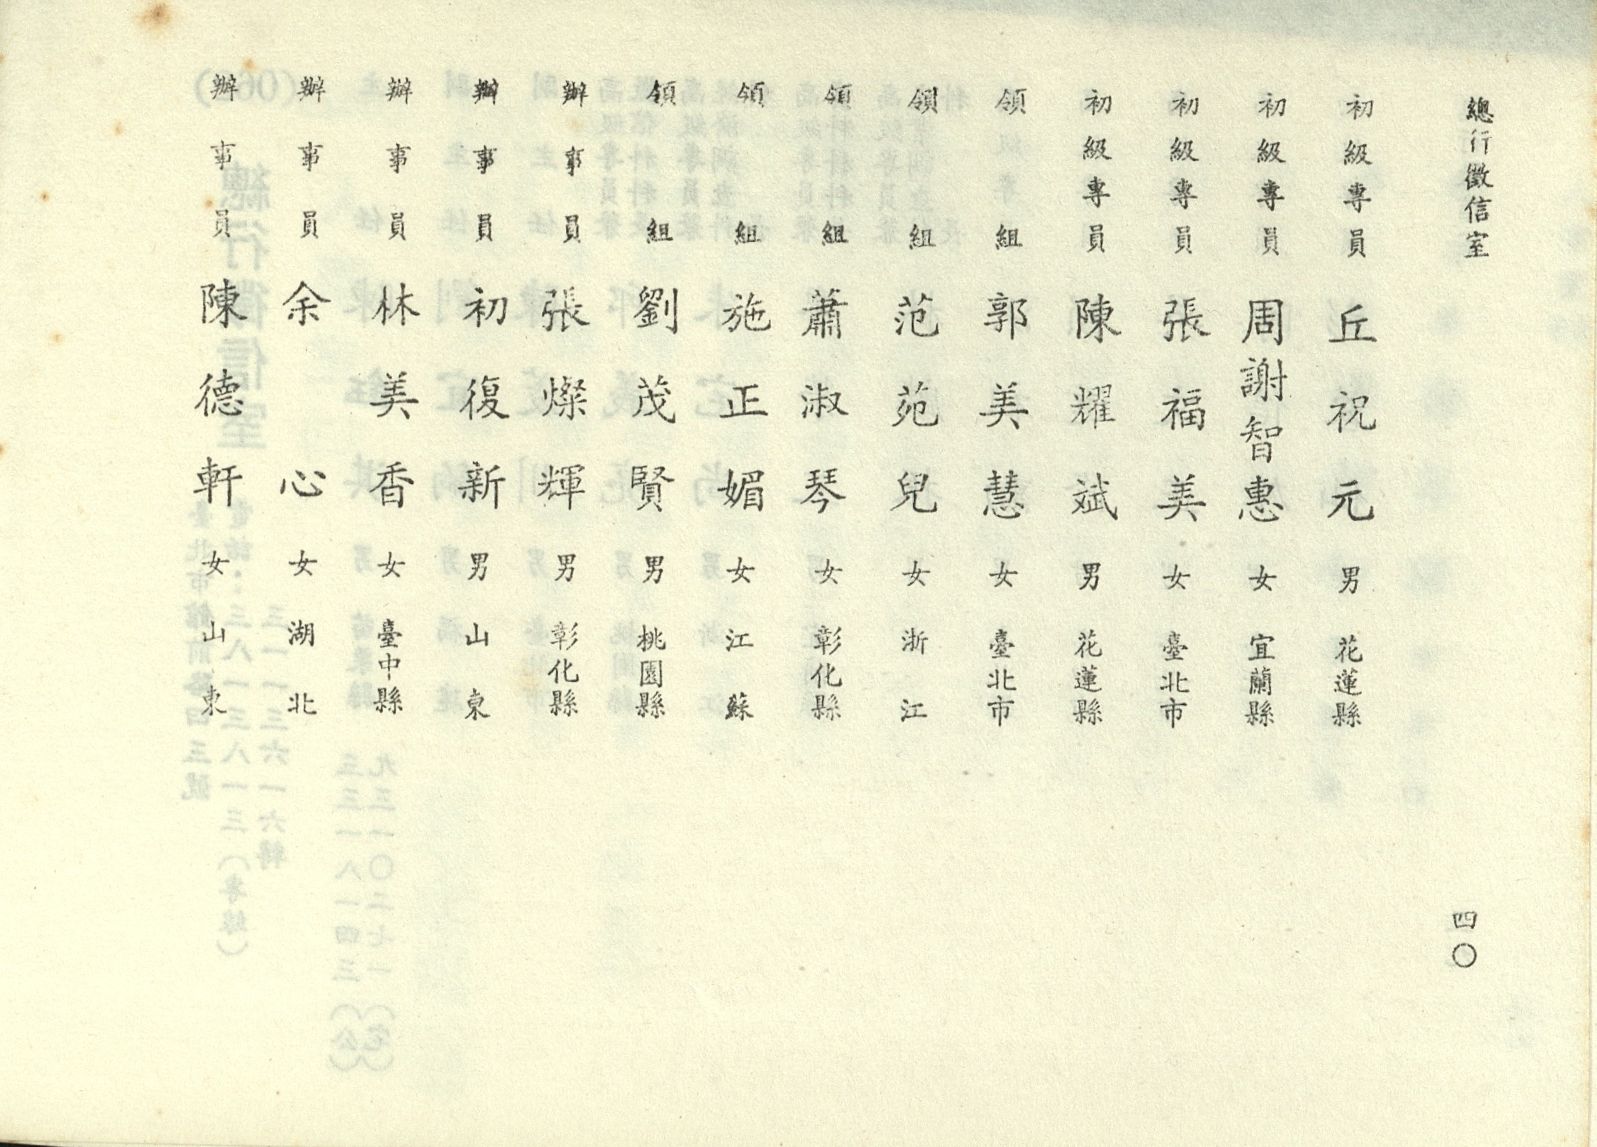 總行徵信室
四〇
初級專員 丘祝元 男 花蓮縣
初級專員 周謝智惠 女 宜蘭縣
初級專員 張福美 女 臺北市
初級專員 陳耀斌 男 花蓮縣
領組 郭美慧 女 臺北市
領組 范苑兒 女 浙江
領組 蕭淑琴 女 彰化縣
領組 施正媚 女 江蘇
領組 劉茂賢 男 桃園縣
辦事員 張燦輝 男 彰化縣
辦事員 初復新 男 山東
辦事員 林美香 女 臺中縣
辦事員 余心 女 湖北
辦事員 陳德軒 女 山東